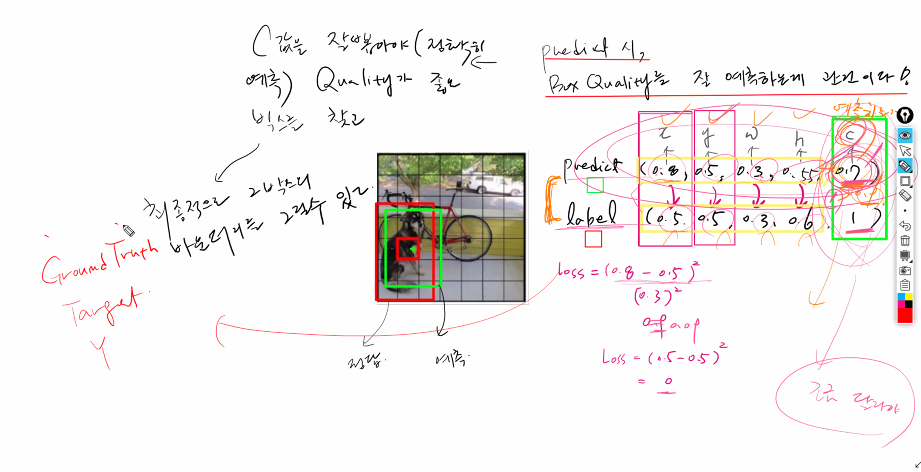 C값을 잘뽑아야(정확히
예측) Quality가 좋은
박스를 찾고
최종적으로 그 박스의
바운더리를 그릴수 있고.
Ground Truth
Target.
Y
정답.
예측.
predict 시,
Box Quality를 잘 예측하는게 관건이라!
x y w h c
predict (0.8, 0.5, 0.3, 0.55, 0.7)
label (0.5, 0.5, 0.3, 0.6, 1)
Loss = (0.8 - 0.5)²
(0.3)²
0.09
Loss = (0.5 - 0.5)²
= 0
조금 달라야